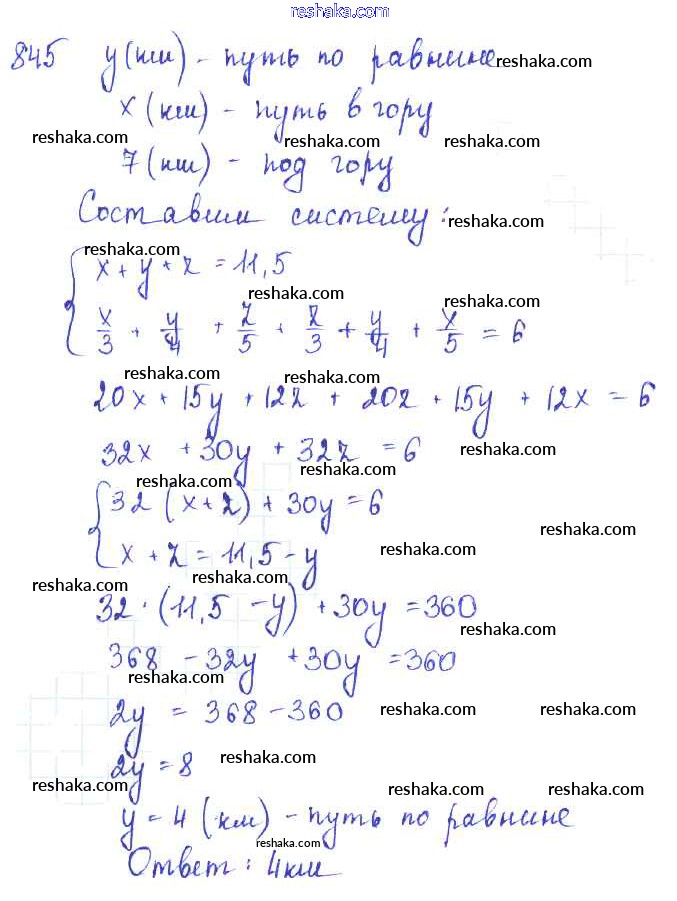 reshaka.com
845 y(км) - путь по равнине reshaka.com
x (км) - путь в гору
reshaka.com reshaka.com reshaka.com
7 (км) - под гору
Составим систему: reshaka.com
reshaka.com
x + y + z = 11,5
reshaka.com reshaka.com
x/3 + y/4 + z/5 + z/3 + y/4 + x/5 = 6
reshaka.com reshaka.com
20x + 15y + 12z + 20z + 15y + 12x = 6
32x + 30y + 32z = 6 reshaka.com
reshaka.com reshaka.com
32 (x + z) + 30y = 6
reshaka.com
x + z = 11,5 - y reshaka.com
reshaka.com reshaka.com
32 · (11,5 - y) + 30y = 360
reshaka.com
368 - 32y + 30y = 360
reshaka.com
2y = 368 - 360 reshaka.com reshaka.com
2y = 8 reshaka.com
reshaka.com reshaka.com reshaka.com
y = 4 (км) - путь по равнине
reshaka.com
Ответ: 4 км